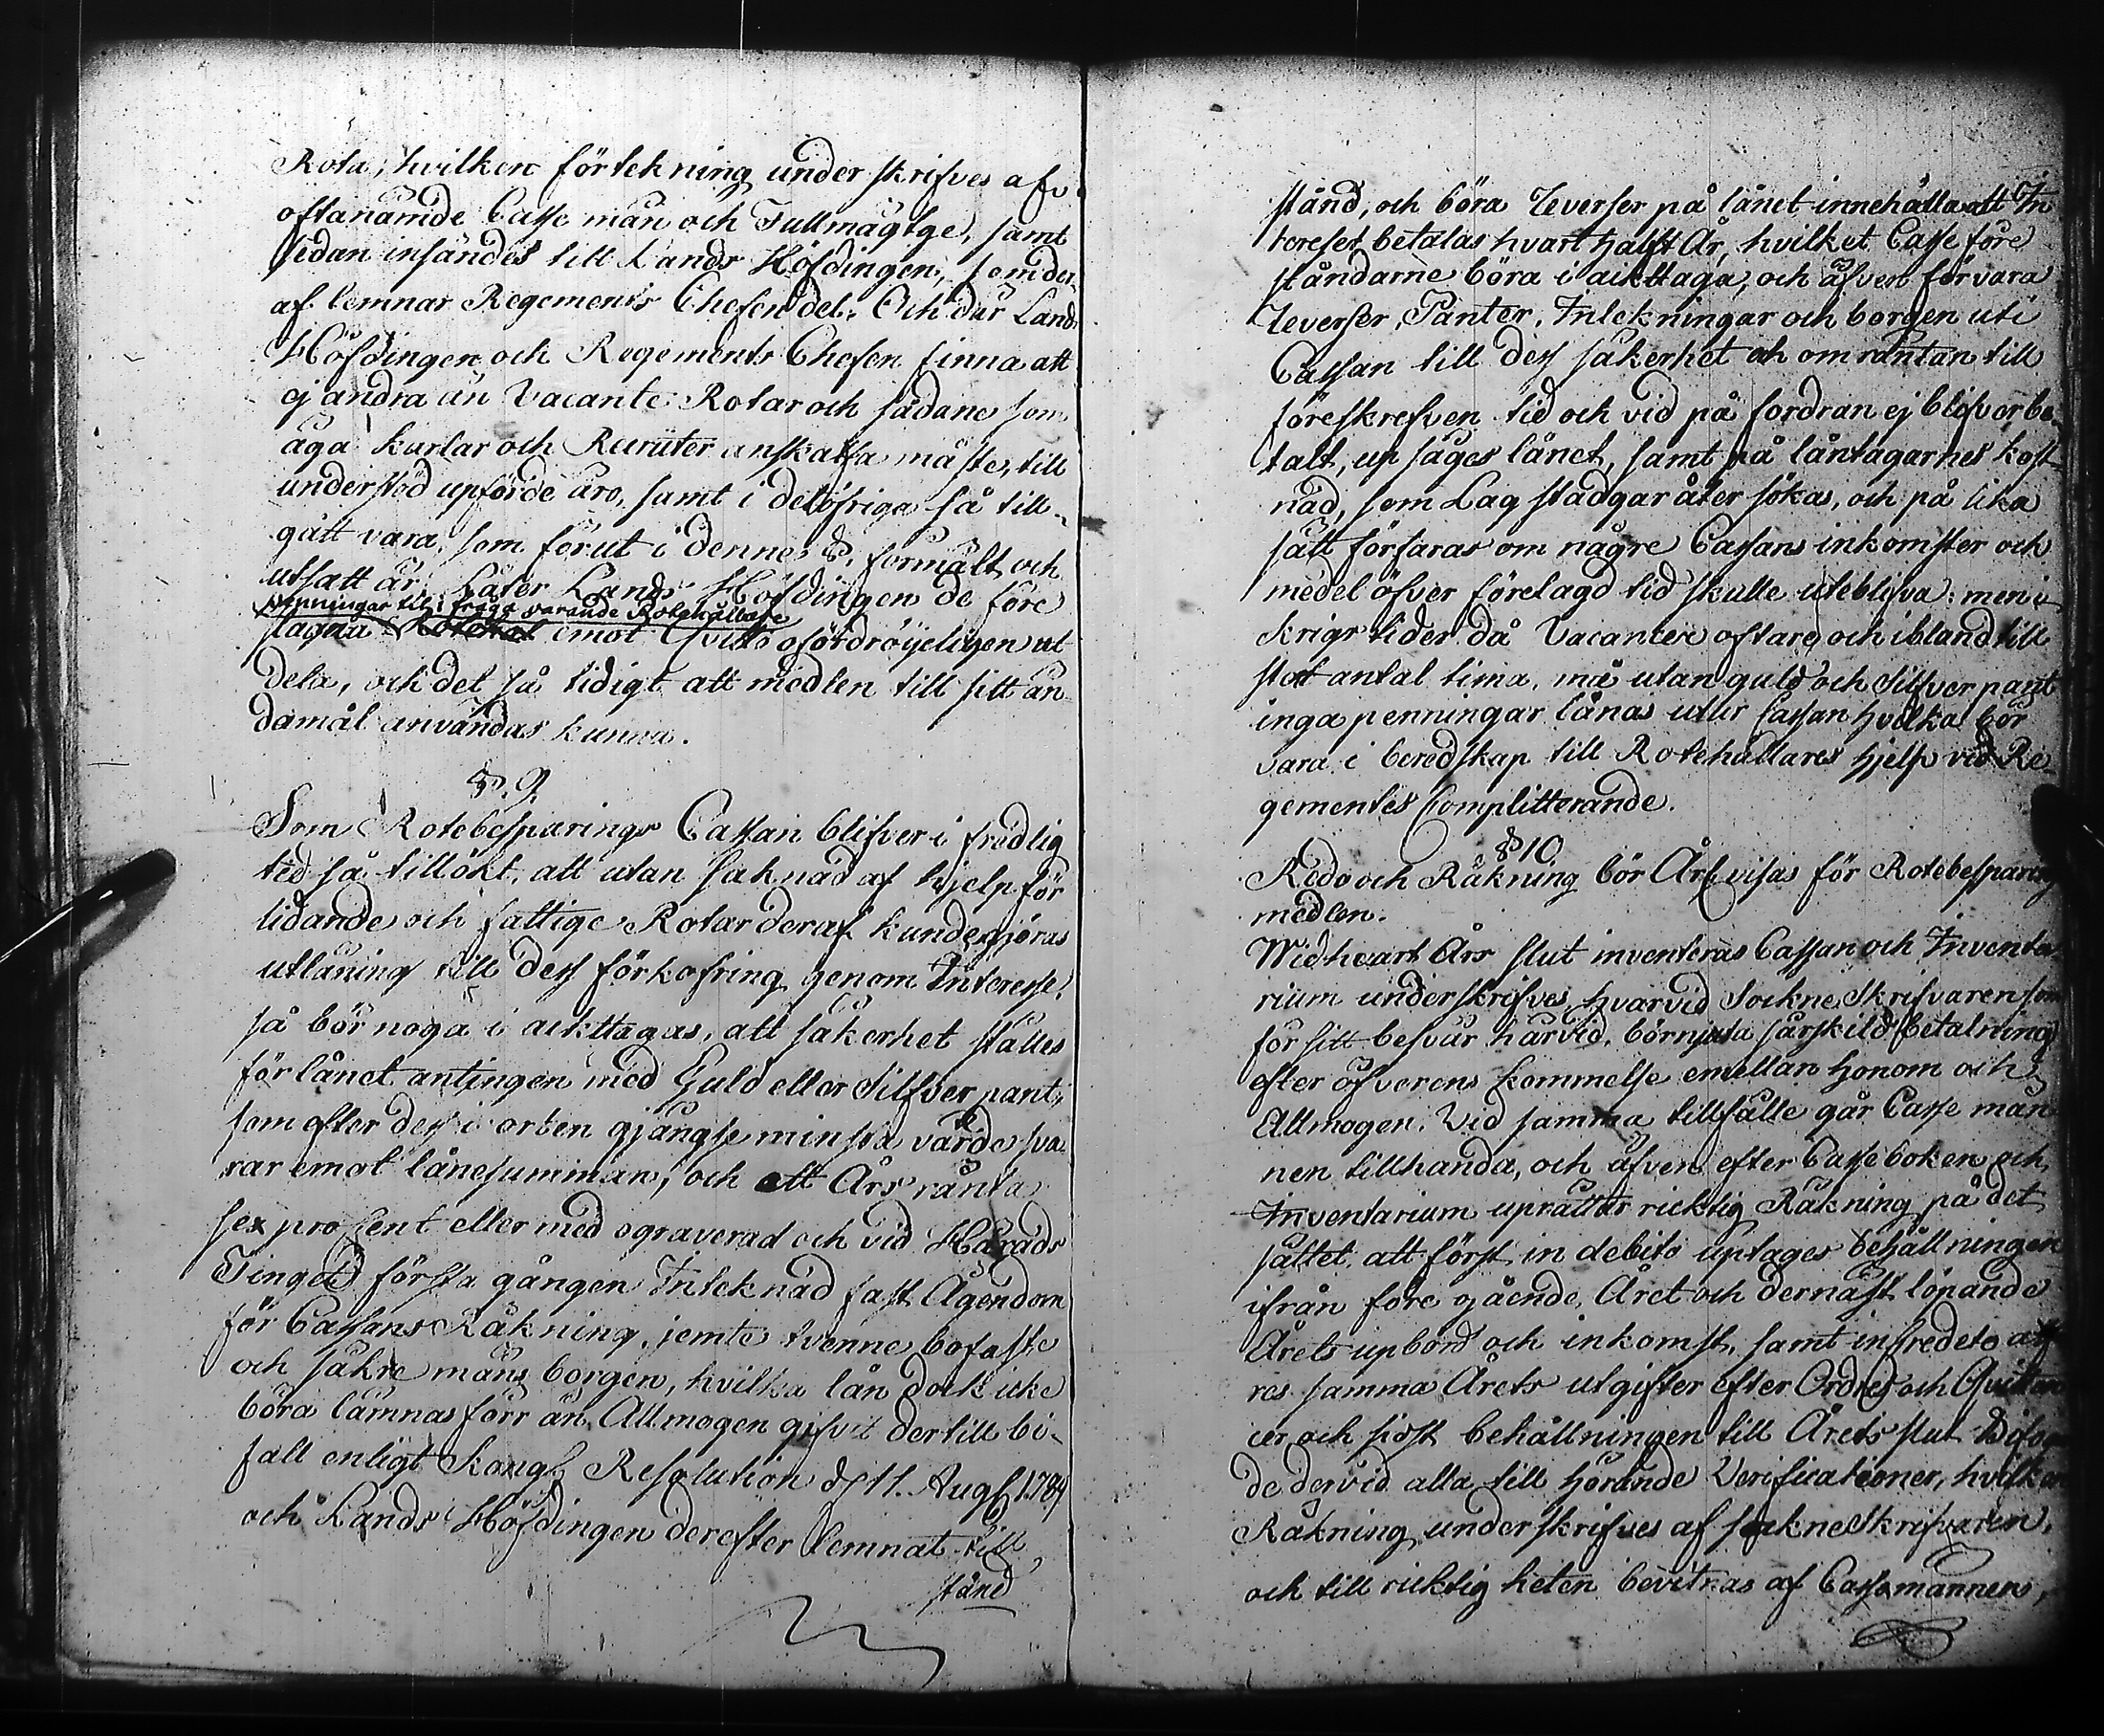 Rota, hvilken förtekning underskrifves af
oftanämde Casse män och Fullmägtge, samt
sedan insändes till Lands Höfdingen, som der-
af lemnar Regements Chefen del. Och där Lands
Höfdingen och Regements Chefen finna att
ej andra än Vacante Rotar och sådane som
äga karlar och Recruter anskaffa måste, till
understöd upförde äro, samt i det öfriga så till-
gått vara, som förut i denne §. förmält och
utsatt är, Låter Lands Höfdingen de före
penningar til i fråga varande Rotehållare
slagna Rotehål emot Qvitto ofördröyeligen ut
dela, och det så tidigt att medlen till sitt än
damål användas kunna.
§. 9.
Som Rotebesparings Cassan blifver i fredlig
tid så tillökt, att utan saknad af hjelp för
lidande och fattige Rotar deraf kunde gjöras
utlåning till dess förkofring genom Interesse,
så bör noga i ackttagas, att säkerhet ställes
för lånet antingen med Guld eller Silfver pant,
som efter dess i orten gjängse minsta värde sva
rar emot lånesumman, och ett Års ränta
sex pro Cent eller med ograverad och vid Härads
Tinget första gången Inteknad fast Ägendom
för Cassans Räkning, jemte tvenne bofaste
och säkre mäns borgen, hvilka lån dock icke
böra lämnas förr än Allmogen gifvit dertill bi-
fall enligt Kongl. Resolution d. 11. Aug. 1784
och Lands Höfdingen derefter lemnat till,
stånd
stånd, och böra Reverser på lånet innehålla att In
teresset betalas hvart halft År, hvilket Casse före
ståndarne böra i ackttaga, och äfven förvara
Reverser, Panter, Intekningar och borgen uti
Cassan till dess säkerhet och om räntan till
föreskrefven tid och vid på fordran ej blifver be-
talt, up säges lånet, samt på låntagarnes kost
nad, som Lag stadgar åter sökas, och på lika
sätt förfaras om någre Cassans inkomster och
medel öfver förelagd tid skulle uteblifva: men i
krigs tider då Vacancer oftare och ibland till
stort antal tima, må utan guld och Silfver pant
inga penningar lånas utur Cassan hvilka bör
vara i beredskap till Rotehållares hjelp vid Re-
gementes Complitterande.
§ 10.
Redo och Räkning bör Årl. visas för Rotebesparings
medlen.
Wid hvart Års slut inventeras Cassan och Inventa
rium underskrifves, hvarvid Sockne Skrifvaren som
för sitt besvär härvid, bör njuta särskild betalning
efter öfverens kommelse emellan honom och
Allmogen. Vid samma tillfälle går Casse män
nen tillhanda, och äfven efter Casse boken och
Inventarium uprättar ricktig Räkning på det
sättet, att först in debito uptages behållningen
ifrån före gående Året och dernäst löpande
Årets upbörd och inkomst, samt in credito
res samma Årets utgifter efter Ordres och Qvitten
cer och sidst behållningen till Årets slut Bifoga
de dervid alla till hörande Verificationer, hvilken
Räkning underskrifves af sockne Skrifvaren,
och till ricktig heten bevitnas af Cassemännen,